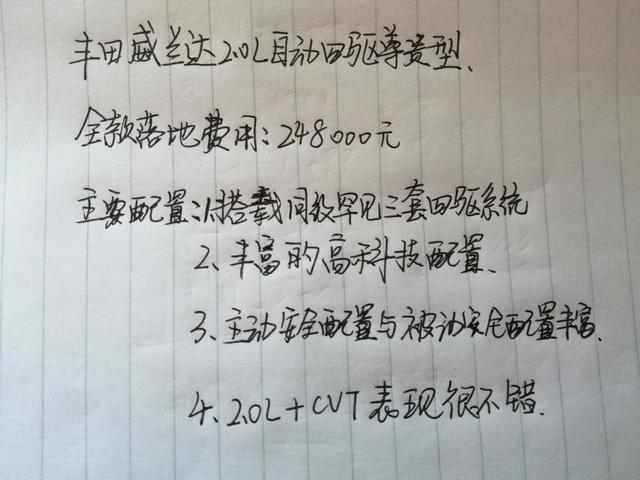 丰田威兰达2.0L自动四驱尊贵型、
全款落地费用：248000元
主要配置：1、搭载同级罕见三套四驱系统
2、丰富的高科技配置、
3、主动安全配置与被动安全配置丰富、
4、2.0L+CVT表现很不错、